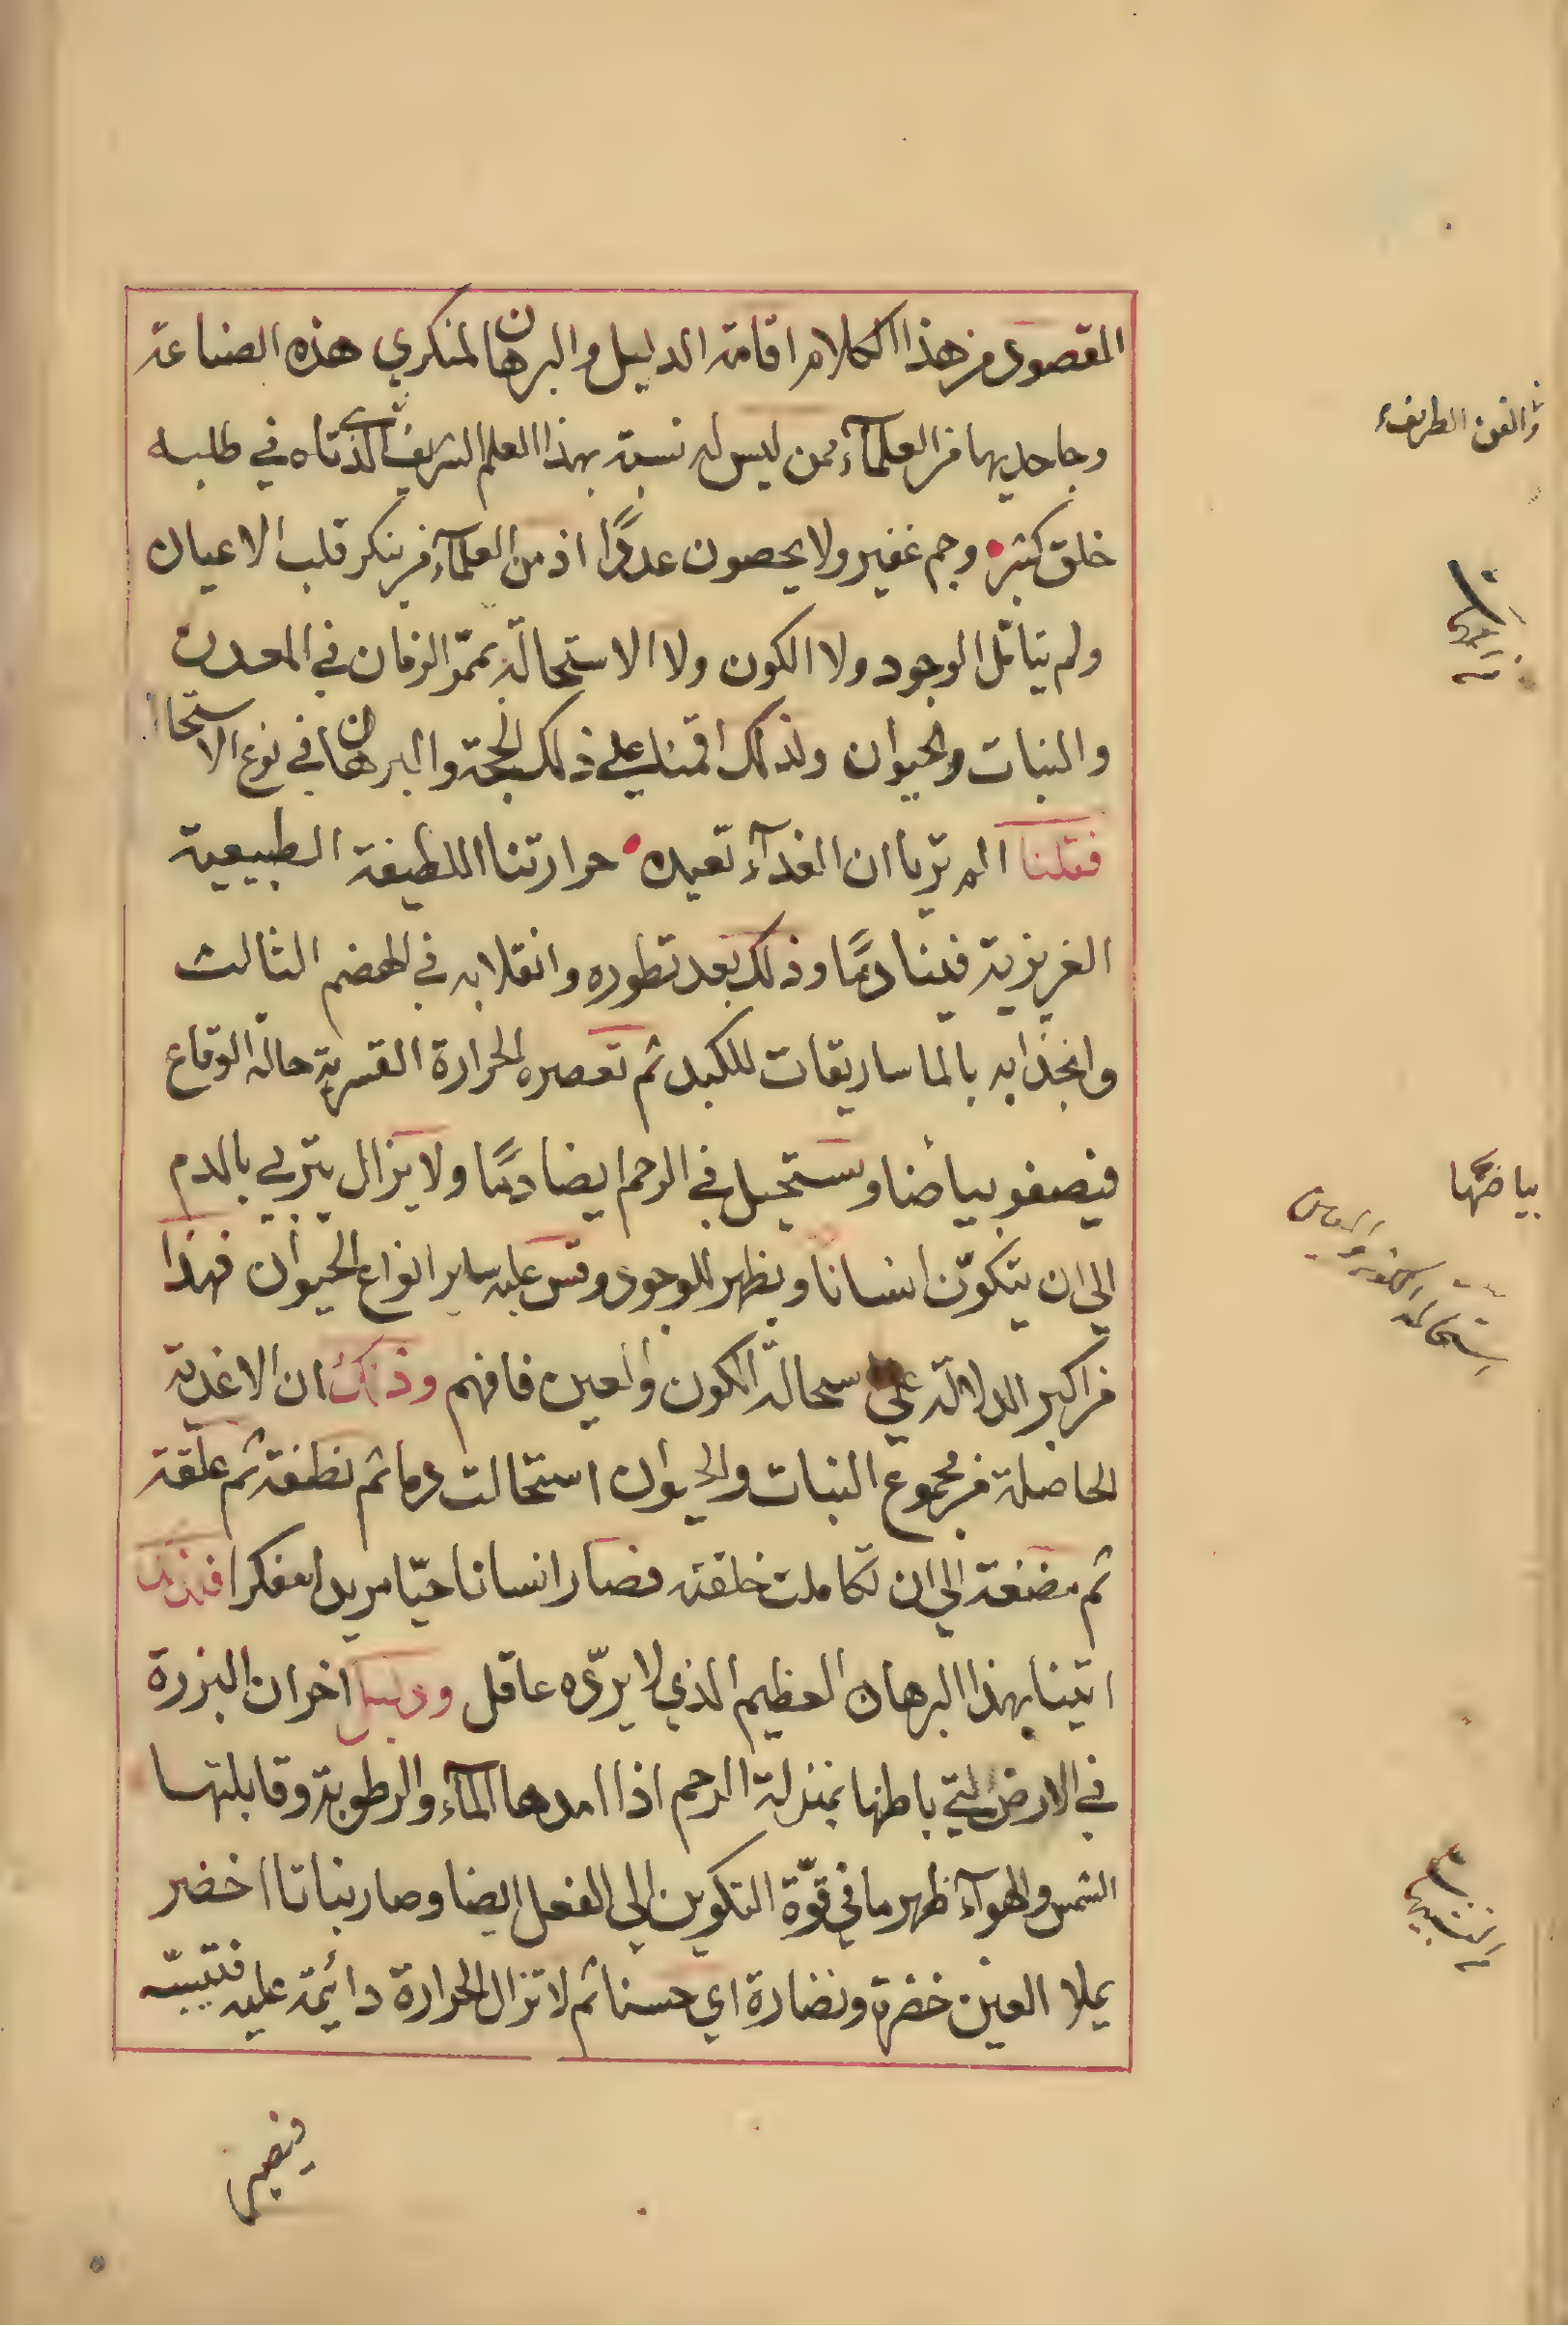 المقصود من هذا الكلام اقامة الدليل والبرهان لمنكري هذه الصناعة
وجاحديها من العلمآء ممن ليس له نسبة بهذا العلم الشريف الذي تاه في طلبه
خلق كثير وجم غفير ولا يحصون عددًا اذ من العلمآء من ينكر قلب الاعيان
ولم يتأمّل الوجود ولا الكون ولا الاستحالة بممرّ الزمان في المعدن
والنبات والحيوان ولذلك اقمنا على ذلك الحجة والبرهان في نوع الاستحالة
فقلنا الم تريا ان الغدآء تعيده حرارتنا اللطيفة الطبيعية
الغريزية فينا دمًا وذلك بعد تطوره وانقلابه في الهضم الثالث
وانجذابه بالماساريقات للكبد ثم تعصره الحرارة القسرية حالة الوقاع
فيصفو بياضا ويستحيل في الرحم ايضا دمًا ولا يزال يتربي بالدم
الي ان يتكوّن انسانًا ويظهر للوجود وقس عليه ساير انواع الحيوان فهذا
من اكبر الدلالة علي سحالة الكون والعين فافهم وذلك ان الاغدية
الحاصلة من مجموع النبات والحيوان استحالت دما ثم نطفة ثم علقة
ثم مضغة الي ان تكاملت خلقته فصار انسانا حيّا مريدا مفكرا فلذلك
اتينا بهذا البرهان العظيم الذي لا يردّه عاقل ودليل اخر ان البزرة
في الارض التي باطنها بمنزلة الرحم اذا امدها المآء والرطوبة وقابلتها
الشمس والهوآء ظهر ما في قوّة التكوين الي الفعل ايضا وصار نباتا اخضر
يملا العين خضرة ونضارة اي حسنا ثم لا تزال الحرارة دائمة عليه فتيبسه
والفن الطريف
بياضها
استحالة الكون والعين
فيصير